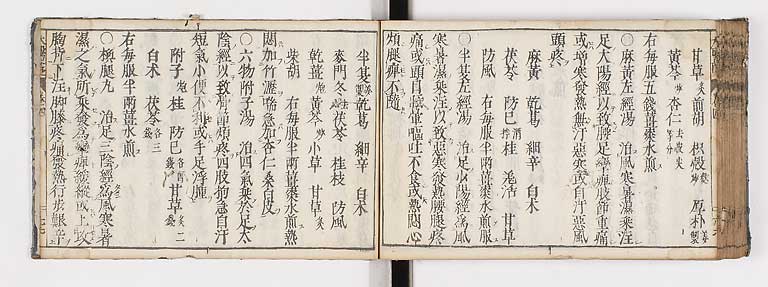 甘草 前胡 枳殻 厚朴
黄芩 杏仁
右毎服五銭薑棗水煎
○麻黄左經湯 治風寒暑濕乗注
足太陽經以致腰足 痺肢節重痛
或増寒發熱無汗惡寒或自汗惡風
頭疼
麻黄 乾葛 細辛 白木
茯苓 防已 桂 羗活 甘草
防風 右毎服半兩薑棗水煎服
○半夏左經湯 治足少陽經為風
寒暑濕乗注以致惡寒發熱腰腿疼
痛或頭目 暈嘔吐不食或熱悶心
煩腿痺不隨
半夏 乾葛 細辛 白木
麥門冬 茯苓 桂枝 防風
乾薑 黄芩 小草 甘草
柴胡 右毎服半兩薑棗水煎熱
悶加竹瀝喘急加杏仁桑白皮
○六物附子湯 治四氣乗於足太
陰經以致骨節煩疼四肢拘急自汗
短氣小便不利或手足浮腫
附子 桂 防已 甘草
白木 茯苓
右毎服半兩薑水煎
○ 腿丸 治足三陰經為風寒暑
濕之氣所乗發為 痺緩縦或上攻
胸 下注脚膝疼痛發熱行歩艱辛